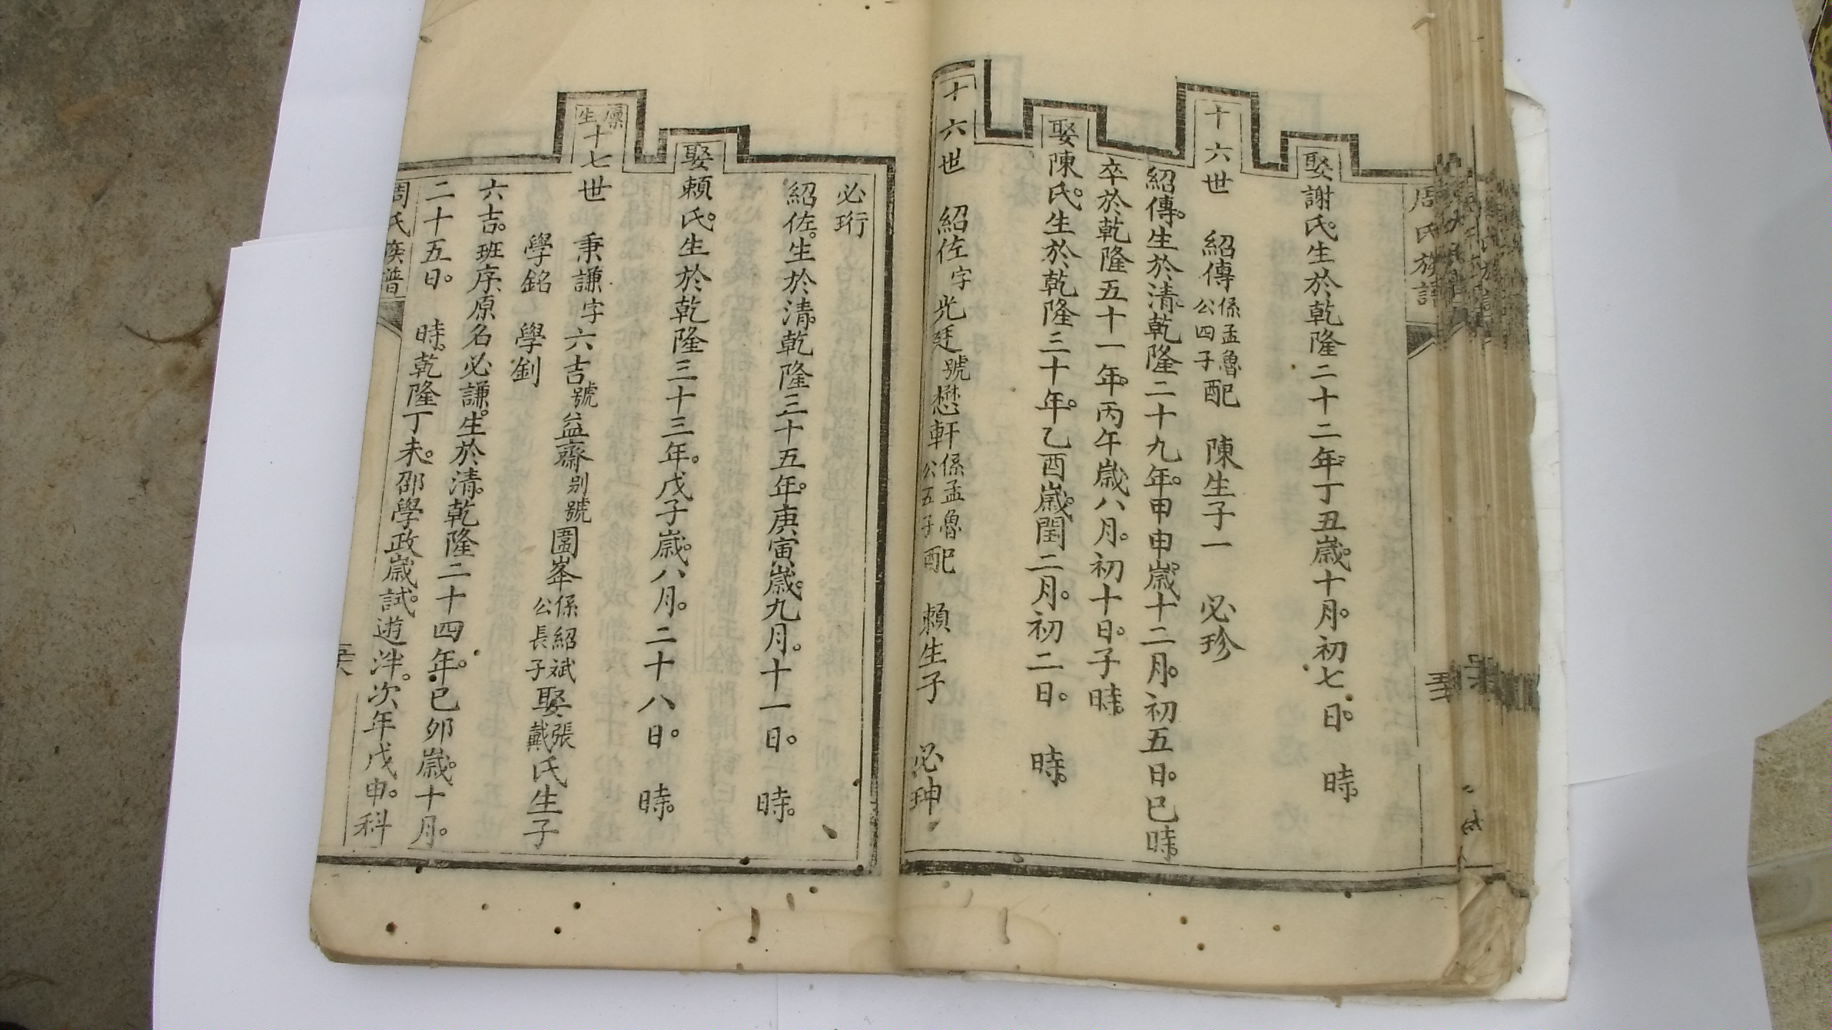 周氏族譜
娶謝氏。生於乾隆二十二年。丁丑歲。十月。初七日。 時。
十六世 紹傳係孟魯公四子配 陳生子一 必珍
紹傳。生於清。乾隆二十九年。甲申歲。十二月。初五日。巳時。
卒於乾隆五十一年。丙午歲。八月。初十日。子時。
娶陳氏。生於乾隆三十年。乙酉歲。閏二月。初二日。 時。
十六世 紹佐字光廷號懋軒係孟魯公五子配 賴生子 必珅
必珩
紹佐。生於清。乾隆三十五年。庚寅歲。九月。十一日。 時。
娶賴氏。生於乾隆三十三年。戊子歲。八月。二十八日。 時。
廩生十七世 秉謙字六吉號益齋别號圖峯係紹斌公長子娶張戴氏生子
學銘 學劉
六吉。班序。原名必謙。生於清。乾隆二十四年。已卯歲。十月。
二十五日。 時。乾隆丁未。邵學政歲試。遊泮。次年戊申。科
周氏族譜